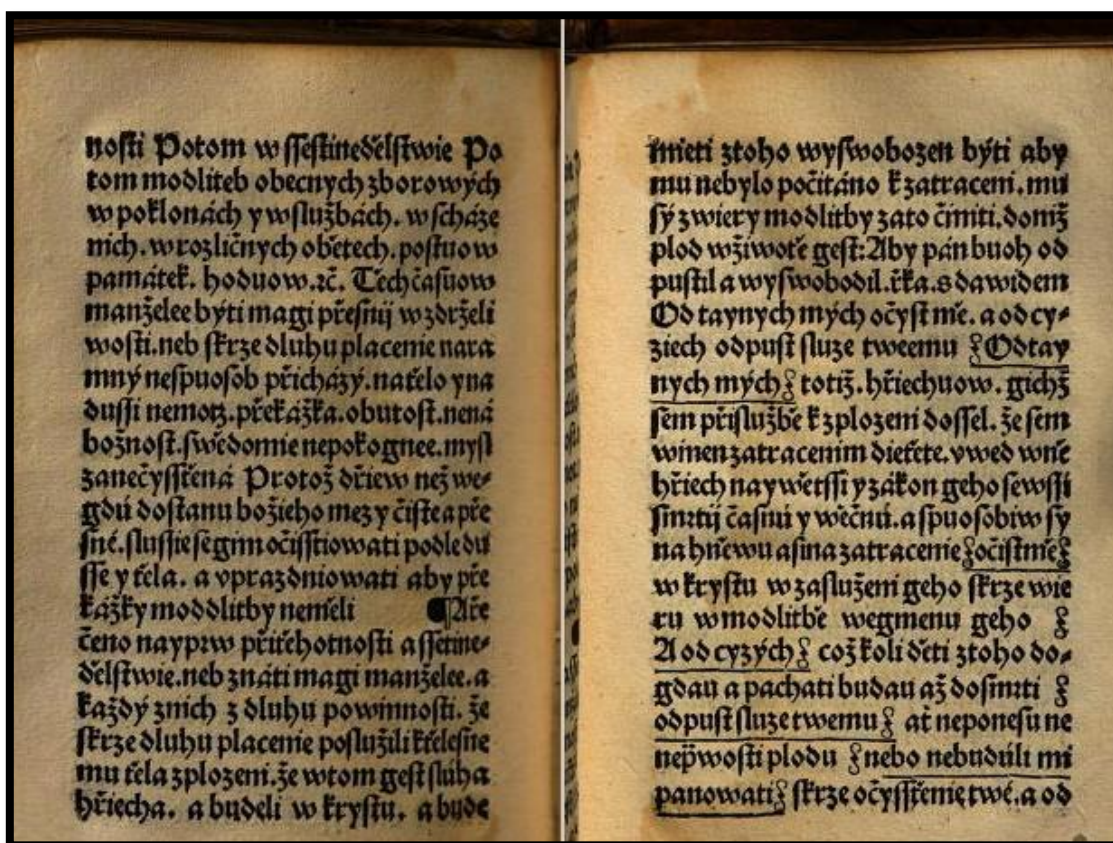 noſti Potom w ſſeſtinedělſtwie Po
tom modliteb obecnych zborowých
w poklonách y wslužbách. w ſcháze
nich. w rozličnych obětech. poſtuow
památek. hoduow. ꝛč. Těch čaſuow
manželee býti magi přeſnij w zdrželi
woſti. neb ſkrze dluhu placenie nara
mný neſpuoſob přicházý. na tělo y na
duſſi nemotz. překážka. obutoſt. nená
božnoſt. ſwědomie nepokognee. myſl
zanečyſſtěná Protož dřiew než we⸗
gdú doſtanu božieho mez y čiſte a pře
ſné. sluſſie ſe gim očiſſtiowati podle du
ſſe y těla. a vprazdniowati aby pře
kážky moddlitby neměli ¶ A ře
čeno nayprw při těhotnoſti a ſſeſtine⸗
dělſtwie. neb znáti magi manželee. a
každý znich z dluhu powinnoſti. že
ſkrze dluhu placenie poslužili k tělesne
mu těla zplozeni. že wtom geſt sluha
hřiecha. a budeli w kryſtu. a bude
mieti ztoho wyſwobozen býti aby
mu nebylo počitáno k zatraceni. mu
ſý z wiery modlitby zato činiti. doniž
plod wžiwotě geſt: Aby pán buoh od
puſtil a wyſwobodil. řka. s dawidem
Od taynych mých očyſt mě. a od cy⸗
ziech odpuſt sluze tweemu Od tay
nych mých totiž. hřiechuow. gichž
ſem při službě k zplozeni doſſel. že ſem
winen zatracenim dietěte. vwed w ně
hřiech naywětſſi y zákon geho ſewſſi
ſmrtij čaſnú y wěčnú. a ſpuoſobiw ſy
na hněwu a ſina zatracenie očiſt mě
w kryſtu w zasluženi geho ſkrze wie
ru w modlitbě wegmenu geho
A od cyzých což koli děti ztoho do⸗
gdau a pachati budau až doſmrti
odpuſt sluze twemu ať neponeſu ne
neprwoſti plodu nebo nebudúli mi
panowati ſkrze očyſſtěnie twé. a od